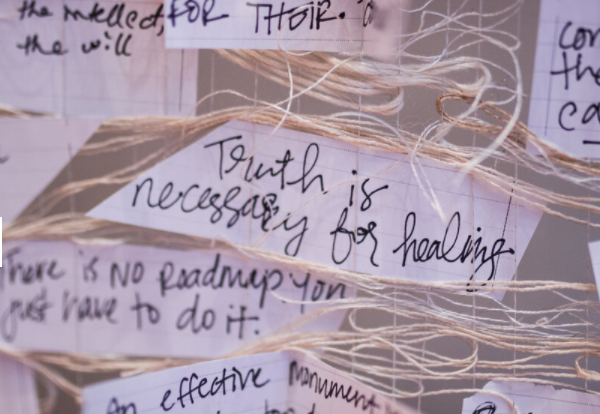 the intellect,
the will
FOR THEIR
Truth is
necessary for healing
There is NO Roadmap you
just have to do it.
An effective Monument